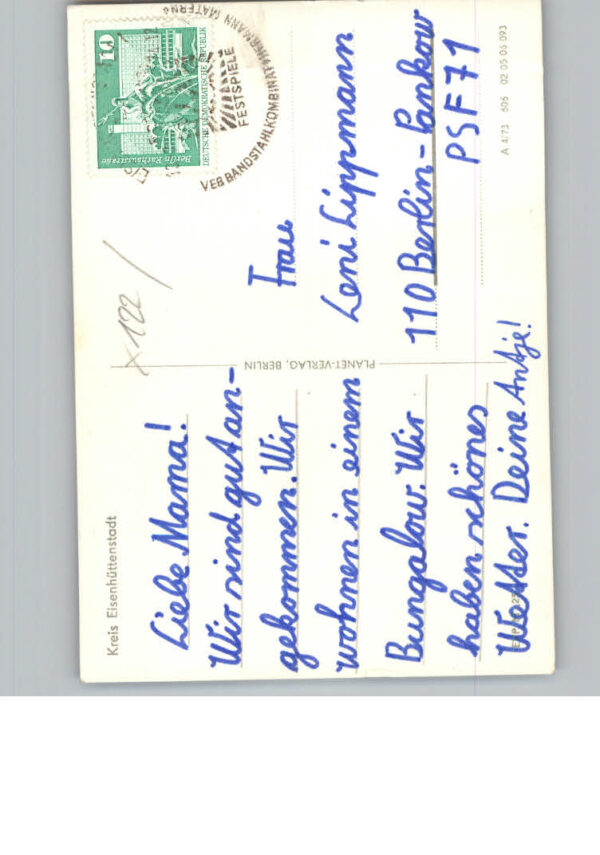 Kreis Eisenhüttenstadt
Liebe Mama!
Wir sind gut an-
gekommen. Wir
wohnen in einem
Bungalow. Wir
haben schönes
Wetter. Deine Antje!
PLANET-VERLAG, BERLIN
x 122 /
10
DEUTSCHE DEMOKRATISCHE REPUBLIK
Berlin Rathausstraße
FESTSPIELE
VEB BANDSTAHLKOMBINAT HERMANN MATERN
Frau
Leni Lippmann
110 Berlin-Pankow
PSF 71
A 4/73 606 02 05 06 093